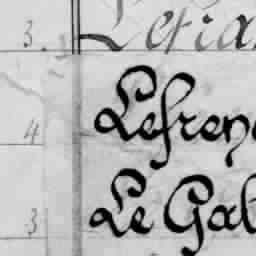 3. Lefra
4 Lefren
3 Le Gal